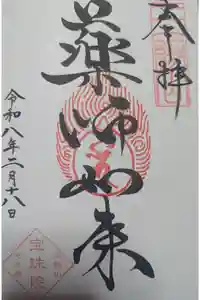 奉拝
薬師如来
令和八年二月十八日
宝珠院